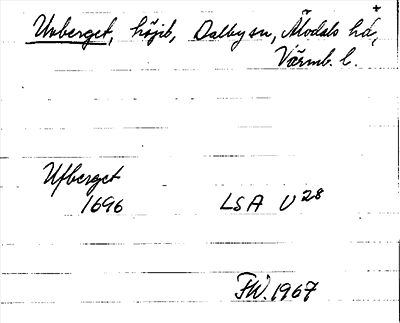 +
Uvberget, höjd, Dalby sn, Älvdals hd,
Värml. l.
Ufberget
1696 LSA U28
FW. 1967